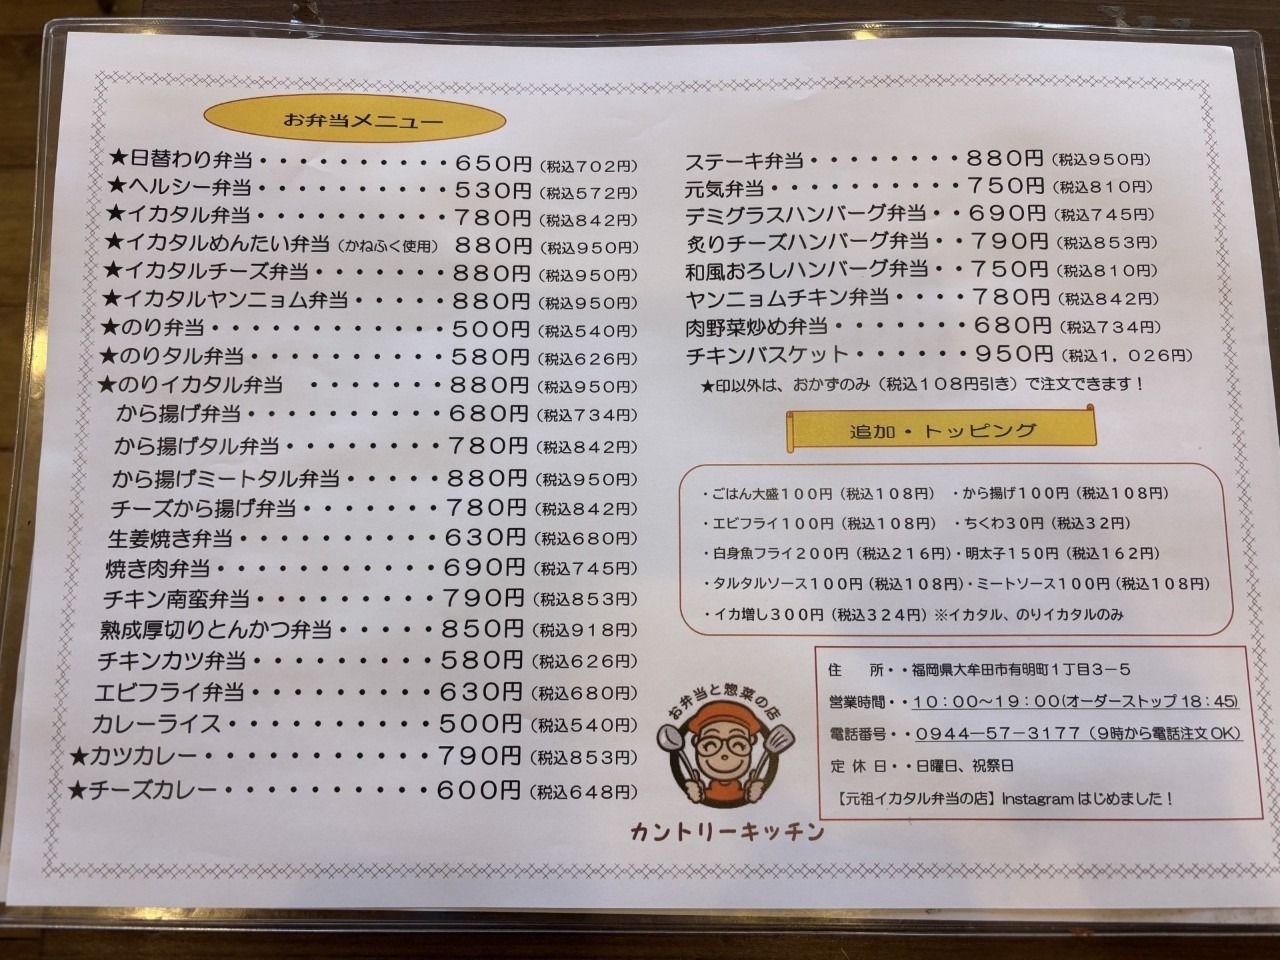 お弁当メニュー
★日替わり弁当・・・・・・・・・・650円(税込702円)
★ヘルシー弁当・・・・・・・・・・530円(税込572円)
★イカタル弁当・・・・・・・・・・780円(税込842円)
★イカタルめんたい弁当(かねふく使用) 880円(税込950円)
★イカタルチーズ弁当・・・・・・・880円(税込950円)
★イカタルヤンニョム弁当・・・・・880円(税込950円)
★のり弁当・・・・・・・・・・・・500円(税込540円)
★のりタル弁当・・・・・・・・・・580円(税込626円)
★のりイカタル弁当 ・・・・・・・880円(税込950円)
から揚げ弁当・・・・・・・・・・680円(税込734円)
から揚げタル弁当・・・・・・・・780円(税込842円)
から揚げミートタル弁当・・・・・880円(税込950円)
チーズから揚げ弁当・・・・・・・780円(税込842円)
生姜焼き弁当・・・・・・・・・・630円(税込680円)
焼き肉弁当・・・・・・・・・・・690円(税込745円)
チキン南蛮弁当・・・・・・・・・790円(税込853円)
熟成厚切りとんかつ弁当・・・・・850円(税込918円)
チキンカツ弁当・・・・・・・・・580円(税込626円)
エビフライ弁当・・・・・・・・・630円(税込680円)
カレーライス・・・・・・・・・・500円(税込540円)
★カツカレー・・・・・・・・・・・790円(税込853円)
★チーズカレー・・・・・・・・・・600円(税込648円)
ステーキ弁当・・・・・・・・880円(税込950円)
元気弁当・・・・・・・・・・750円(税込810円)
デミグラスハンバーグ弁当・・690円(税込745円)
炙りチーズハンバーグ弁当・・790円(税込853円)
和風おろしハンバーグ弁当・・750円(税込810円)
ヤンニョムチキン弁当・・・・780円(税込842円)
肉野菜炒め弁当・・・・・・・680円(税込734円)
チキンバスケット・・・・・・950円(税込1,026円)
★印以外は、おかずのみ(税込108円引き)で注文できます!
追加・トッピング
・ごはん大盛100円(税込108円) ・から揚げ100円(税込108円)
・エビフライ100円(税込108円) ・ちくわ30円(税込32円)
・白身魚フライ200円(税込216円)・明太子150円(税込162円)
・タルタルソース100円(税込108円)・ミートソース100円(税込108円)
・イカ増し300円(税込324円)※イカタル、のりイカタルのみ
お弁当と惣菜の店
カントリーキッチン
住 所・・福岡県大牟田市有明町1丁目3-5
営業時間・・10:00〜19:00(オーダーストップ18:45)
電話番号・・0944-57-3177(9時から電話注文OK)
定 休 日・・日曜日、祝祭日
【元祖イカタル弁当の店】Instagramはじめました!